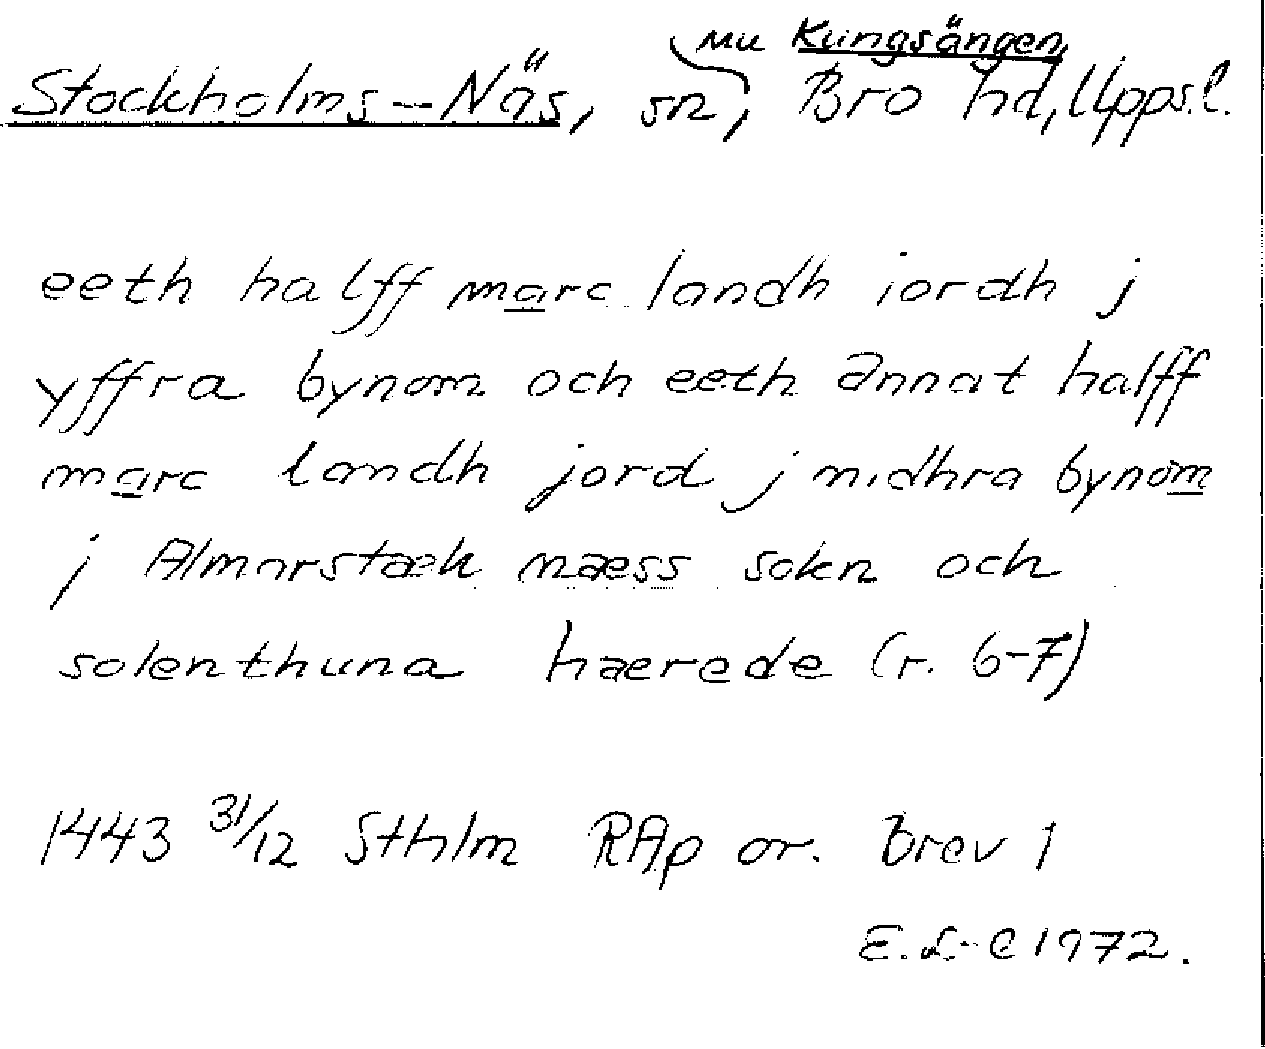 nu Kungsängen,
Stockholms-Näs, sn, Bro hd, Upps.l.
eeth halff marc landh iordh j
yffra bynom och eeth annat halff
marc landh jord j nidhra bynom
j Almarstæk næss sokn och
solenthuna hærede (r. 6-7)
1443 31/12 Sthlm RAp or. Brev 1
E. L-C 1972.